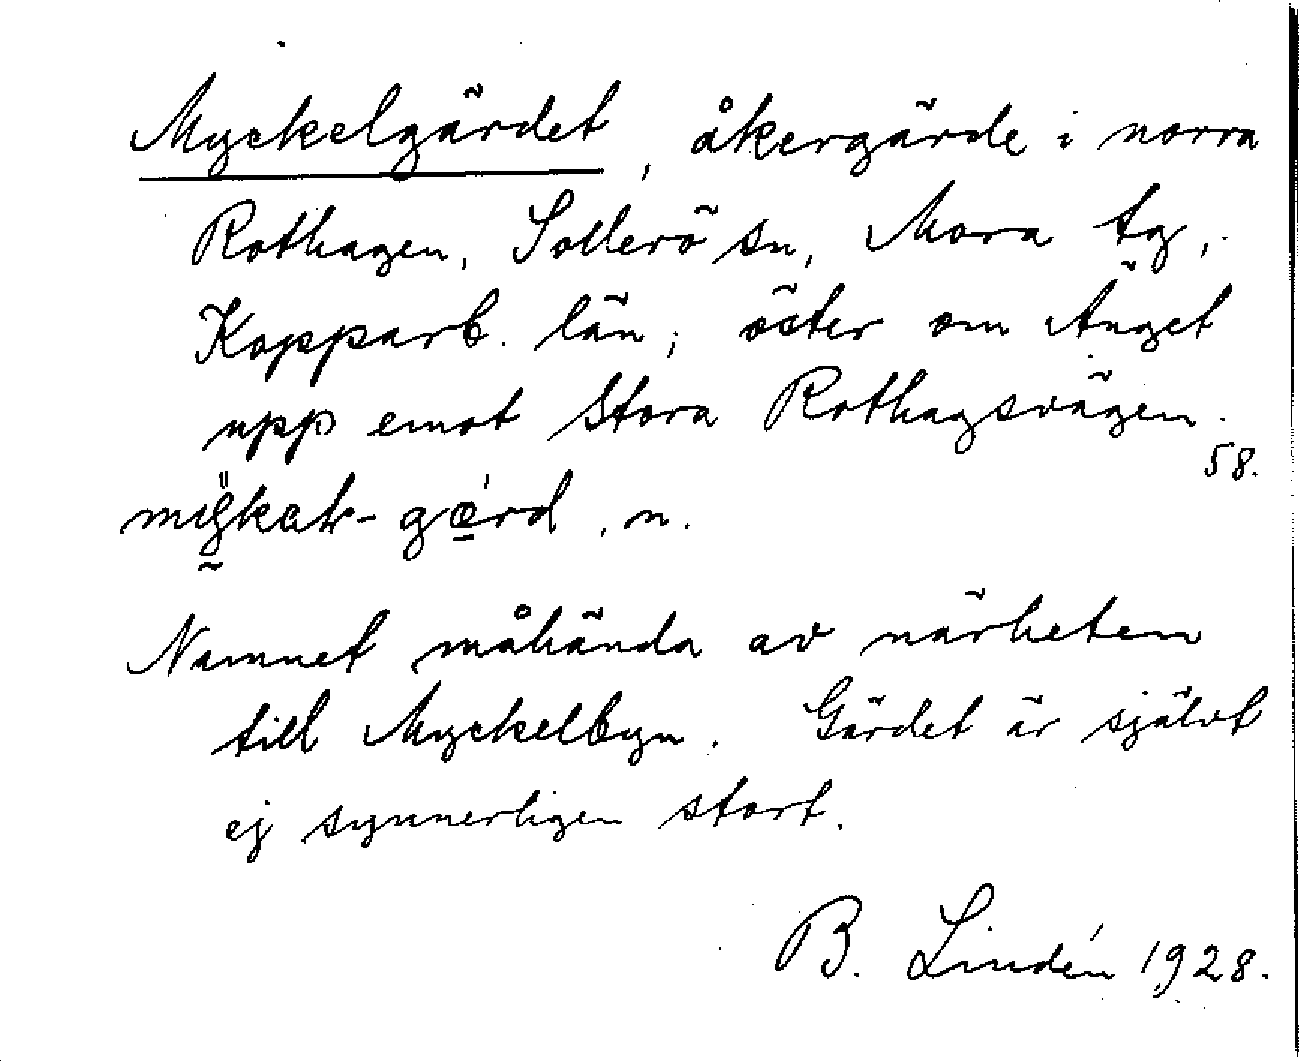 Myckelgärdet, åkergärde i norra
Rothagen, Sollerö sn, Mora tg,
Kopparb. län; öster om Änget
upp emot Stora Rothagsvägen.
58.
-gærd, n.
Namnet måhända av närheten
till Myckelbyn. Gärdet är självt
ej synnerligen stort.
B. Lindén 1928.